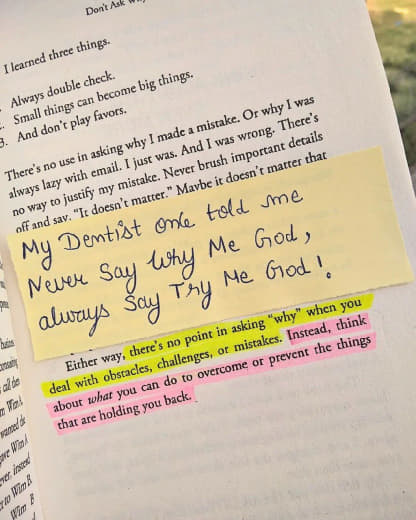 Don't Ask
I learned three things.
Always double check.
Small things can become big things.
3. And don't play favors.
There's no use in asking why I made a mistake. Or why I was
always lazy with email. I just was. And I was wrong. There's
no way to justify my mistake. Never brush important details
off and say, "It doesn't matter." Maybe it doesn't matter that
My Dentist one told me
Never Say Why Me God,
always Say Try Me God!
Either way, there's no point in asking "why" when you
deal with obstacles, challenges, or mistakes. Instead, think
about what you can do to overcome or prevent the things
that are holding you back.